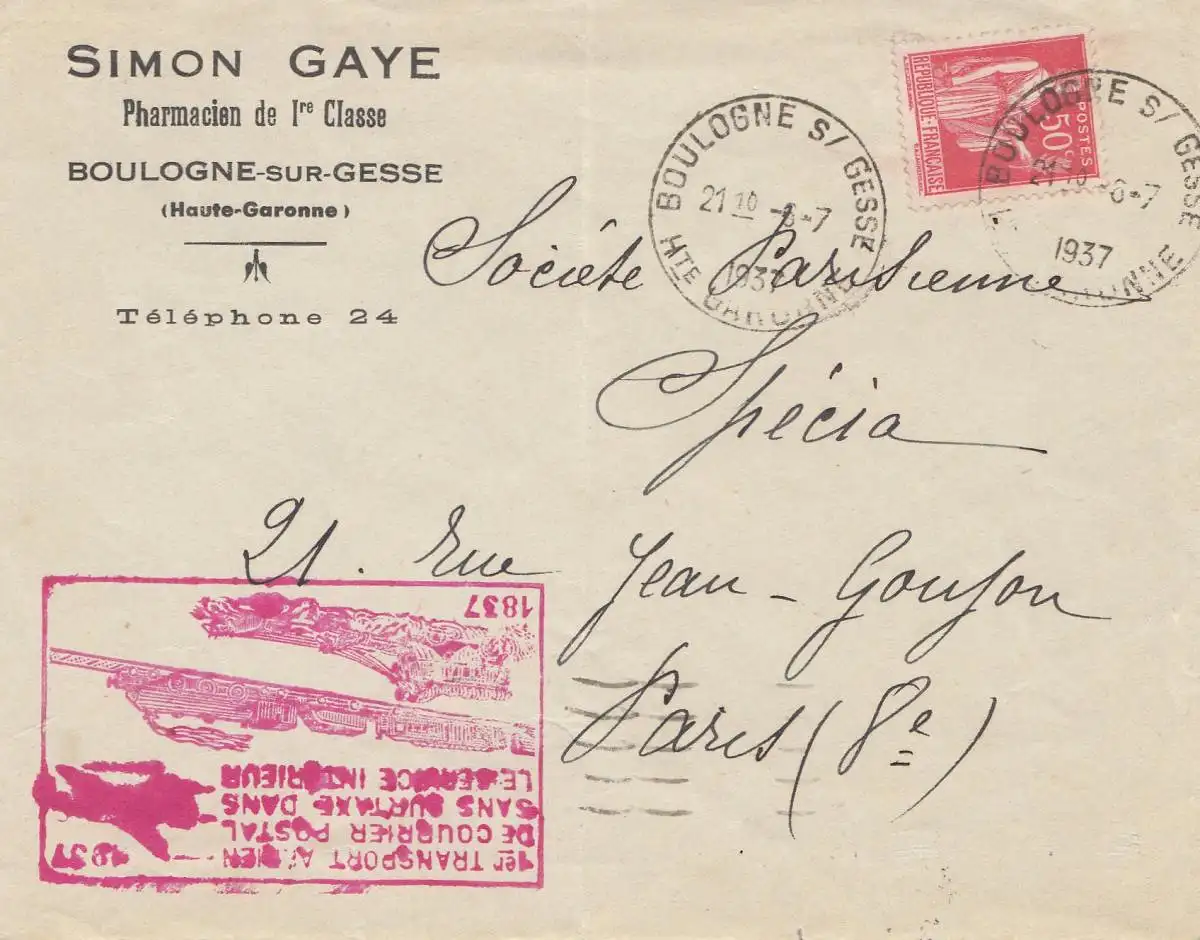 SIMON GAYE
Pharmacien de Ire Classe
BOULOGNE-SUR-GESSE
(Haute-Garonne)
Téléphone 24
REPUBLIQUE FRANÇAISE
50c
POSTES
BOULOGNE S/ GESSE
21 10 -6-7
1937
HTE GARONNE
BOULOGNE S/ GESSE
21 10 -6-7
1937
GARONNE
Société Parisienne
Spécia
21. Rue Jean-Goujon
Paris (8e)
1er TRANSPORT AÉRIEN
DE COURRIER POSTAL
SANS SURTAXE DANS
LE SERVICE INTÉRIEUR
1937
1837